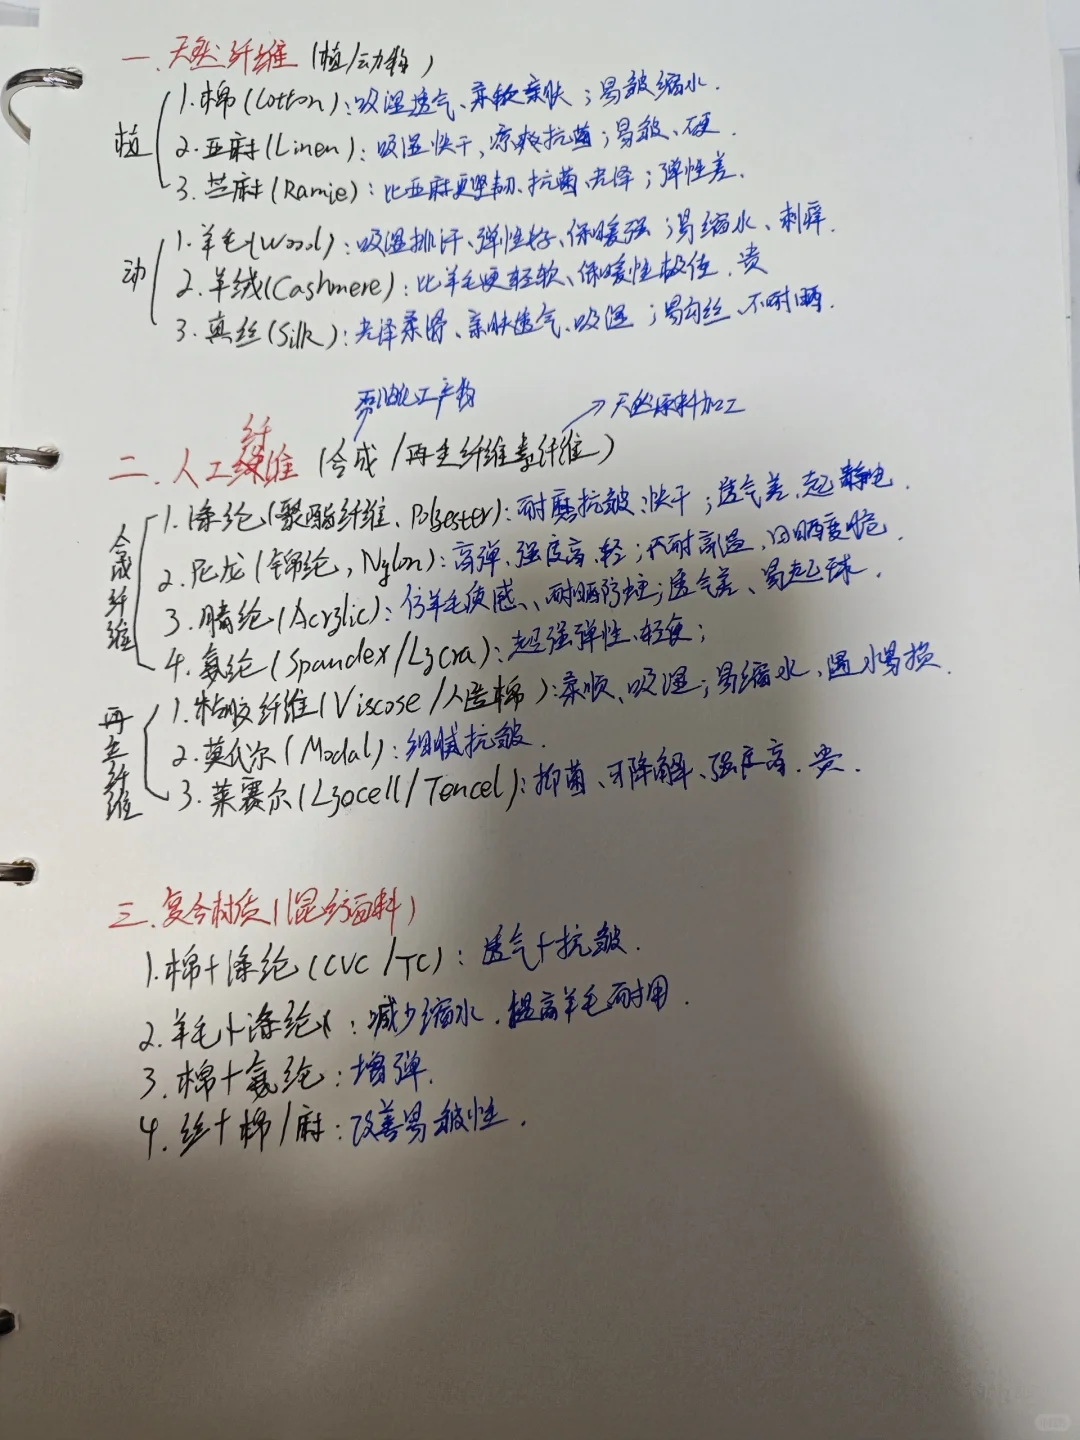 一.天然纤维(植/动物)
植
1.棉(Cotton):吸湿透气、柔软亲肤;易皱缩水.
2.亚麻(Linen):吸湿快干,凉爽抗菌;易皱、硬.
3.苎麻(Ramie):比亚麻更坚韧、抗菌、光泽;弹性差.
动
1.羊毛(Wool):吸湿排汗、弹性好、保暖强;易缩水、刺痒.
2.羊绒(Cashmere):比羊毛更轻软、保暖性极佳.贵
3.真丝(Silk):光泽柔滑、亲肤透气、吸湿;易勾丝、不耐晒
石油化工产物
→天然原料加工
二.人工纤维(合成/再生纤维素纤维)
合成纤维
1.涤纶(聚酯纤维、Polyester):耐磨抗皱、快干;透气差.起静电.
2.尼龙(锦纶,Nylon):高弹、强度高、轻;不耐高温,日晒变脆.
3.腈纶(Acrylic):仿羊毛质感、耐晒防蛀;透气差、易起球.
4.氨纶(Spandex/Lycra):超强弹性、轻便;
再生纤维
1.粘胶纤维(Viscose/人造棉):柔顺、吸湿;易缩水、遇水易损.
2.莫代尔(Modal):细腻抗皱.
3.莱赛尔(Lyocell/Tencel):抑菌、可降解、强度高.贵.
三.复合材质(混纺面料)
1.棉+涤纶(CVC/TC):透气+抗皱.
2.羊毛+涤纶:减少缩水.提高羊毛耐用.
3.棉+氨纶:增弹.
4.丝+棉/麻:改善易皱性.